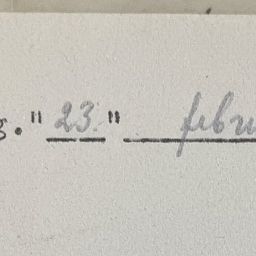 g. "23." febru